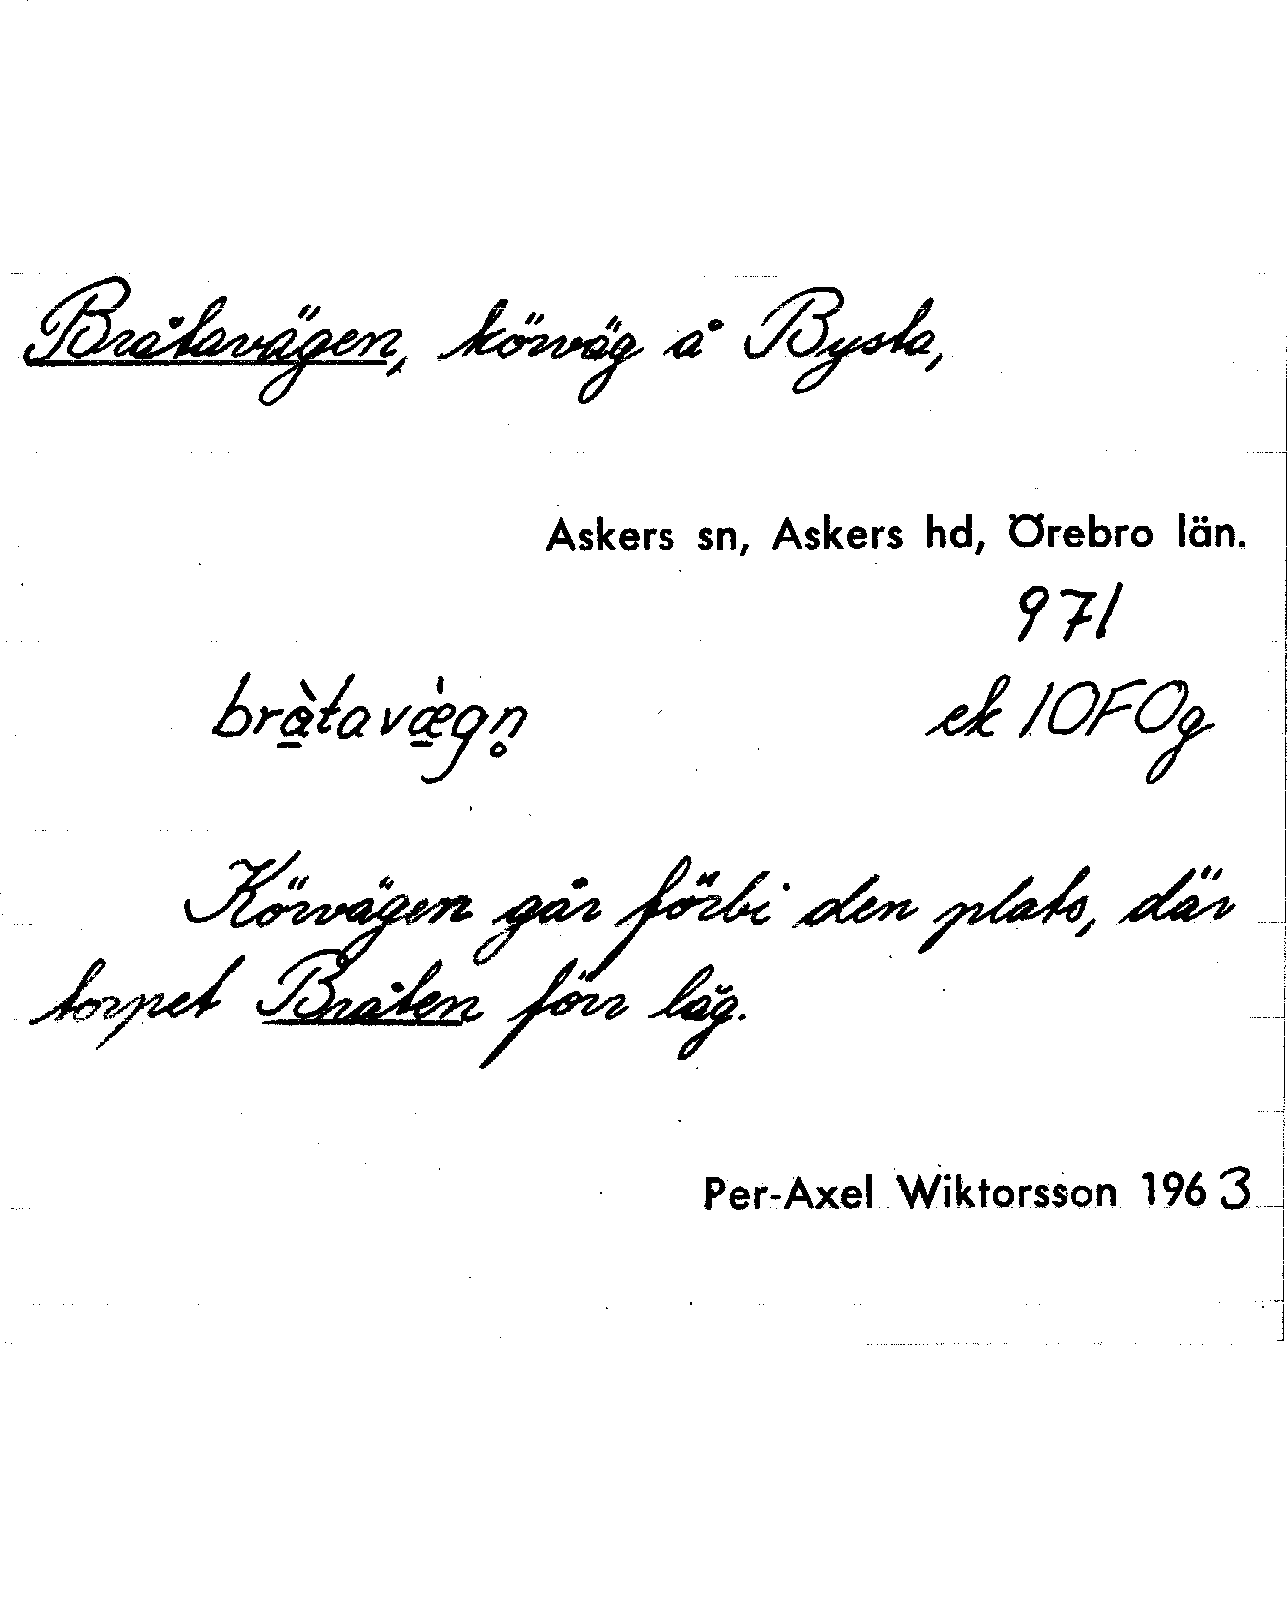 Bråtavägen, körväg å Bysta,
Askers sn, Askers hd, Örebro län.
971
brà̠tavæ̠̀gn̥ ek 10F0g
Körvägen går förbi den plats, där
torpet Bråten förr låg.
Per-Axel Wiktorsson 1963